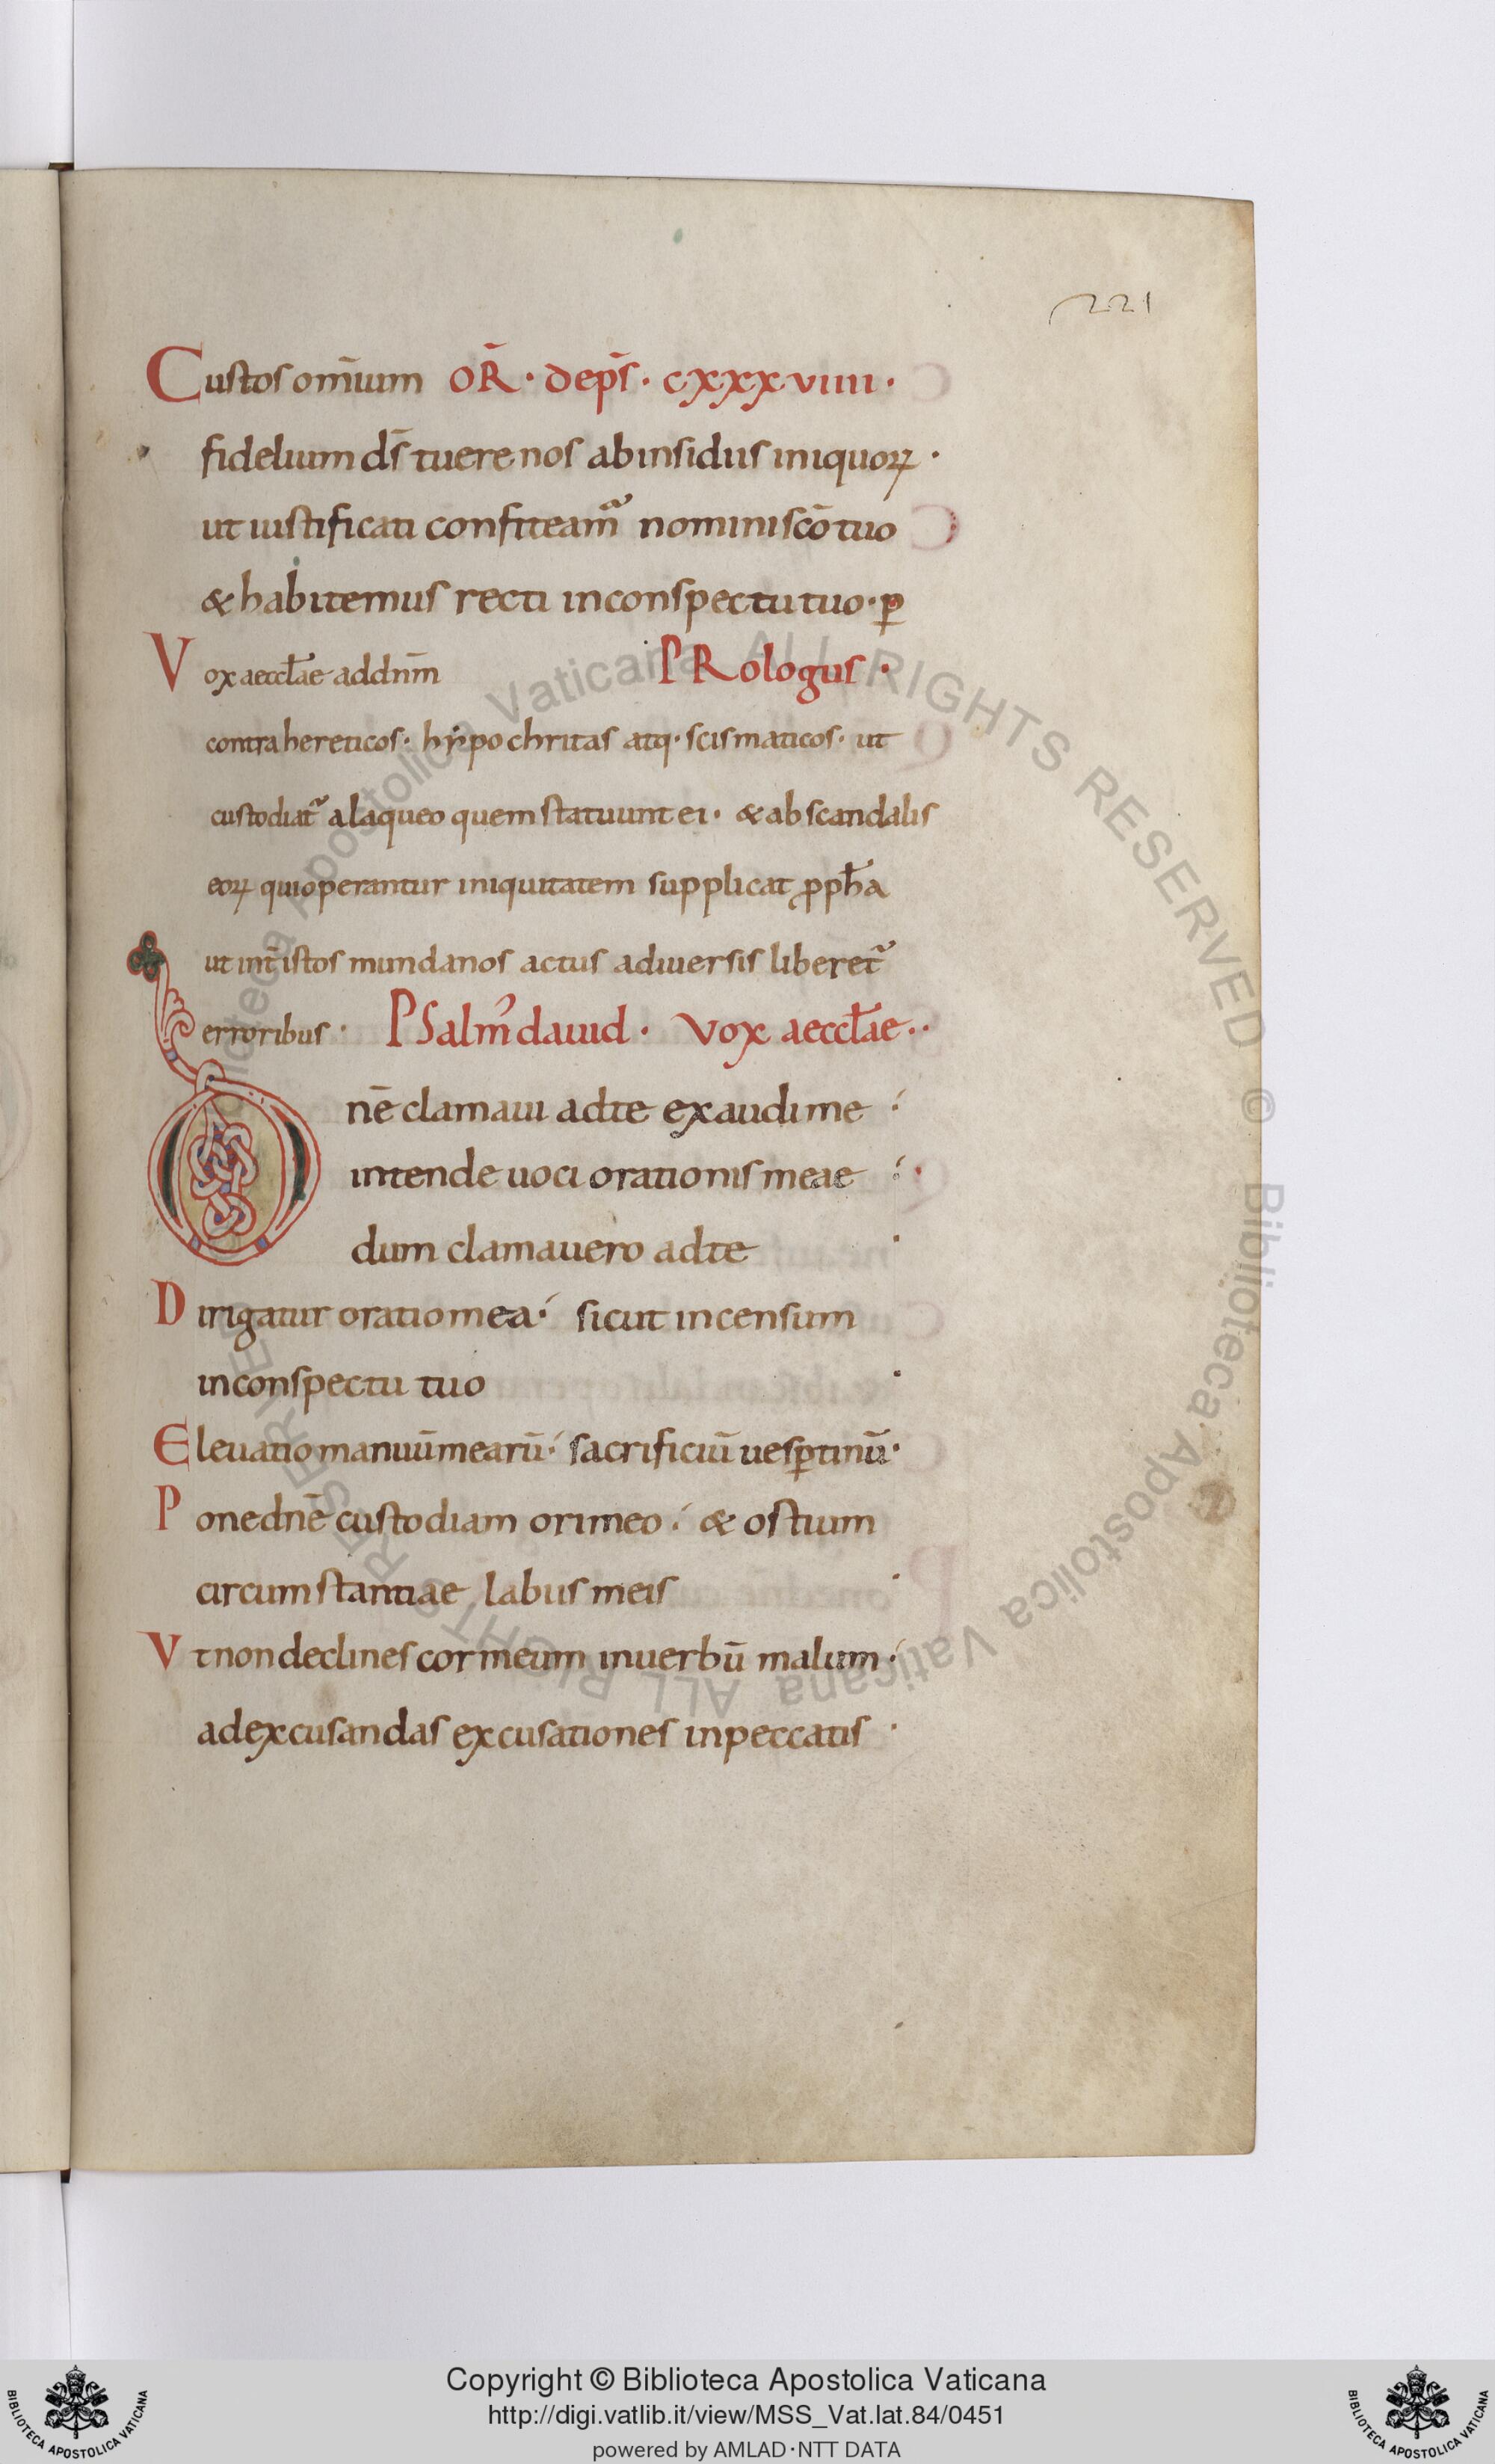 221
Custos om̄ium OR̄· dep̄s· cxxxviiii·
fidelium ds̄ tuere nos ab insidiis iniquoꝝ·
ut iustificati confiteam᷑ nomini sc̄o tuo
& habitemus recti in conspectu tuo· ꝑ
Vox aeccl̄ae ad dn̄m PRologus·
contra hereticos· hẏpochritas atq· scismaticos· ut
custodiat᷑ a laqueo quem statuunt ei· & ab scandalis
eoꝝ qui operantur iniquitatem supplicat ꝓph̄a
ut int̄ istos mundanos actus a diuersis liberet᷑
erroribus· PSalm᾽ dauid· Vox aeccl̄ae··
Dnē clamaui ad te exaudi me
intende uoci orationis meae
dum clamauero ad te·
Dirigatur oratio mea· sicut incensum
in conspectu tuo·
Eleuatio manuū mearū· sacrificiū uesꝑtinū·
Pone dnē custodiam ori meo· & ostium
circumstantiae labiis meis·
Vt non declines cor meum in uerbū malum·
ad excusandas excusationes in peccatis·
Copyright © Biblioteca Apostolica Vaticana
http://digi.vatlib.it/view/MSS_Vat.lat.84/0451
powered by AMLAD·NTT DATA
BIBLIOTECA APOSTOLICA VATICANA
BIBLIOTECA APOSTOLICA VATICANA
Biblioteca Apostolica Vaticana ALL RIGHTS RESERVED © Biblioteca Apostolica Vaticana ALL RIGHTS RESERVED ©